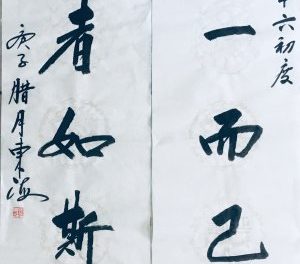 十六初度
一而已
者如斯
庚子腊月東海